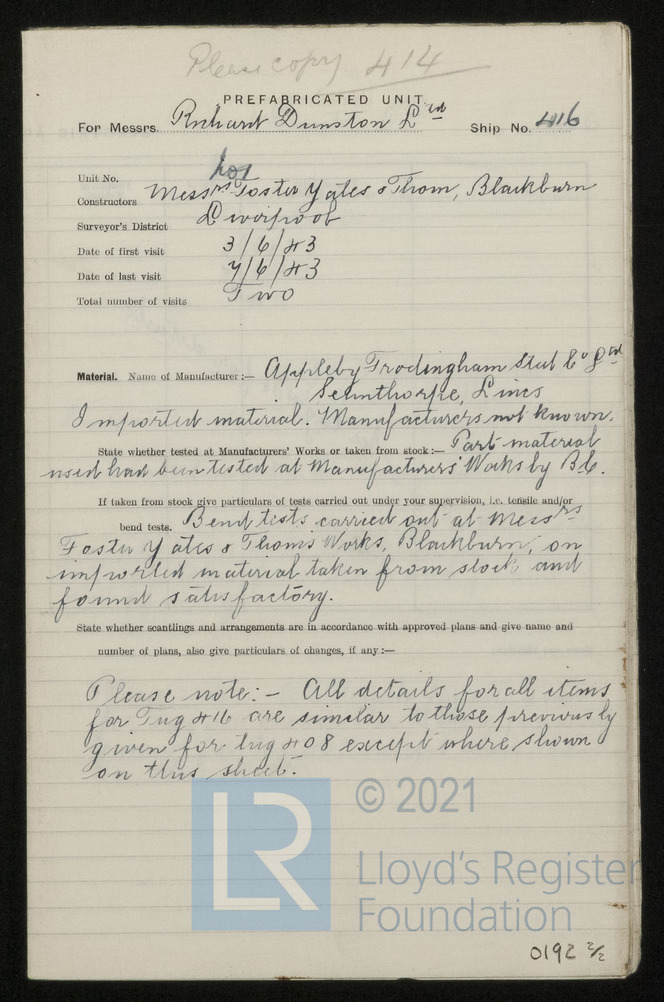 Please copy 414
PREFABRICATED UNIT
For Messrs. Richard Dunston Ltd Ship No. 416
Unit No.
Constructors Messrs Foster Yates & Thom, Blackburn
Surveyor's District Liverpool
Date of first visit 3/6/43
Date of last visit 7/6/43
Total number of visits Two
Material. Name of Manufacturer:— Appleby Frodingham Steel Co Ltd
Scunthorpe, Lincs
Imported material. Manufacturers not known.
State whether tested at Manufacturers' Works or taken from stock:— Part material
used had been tested at Manufacturers' Works by B.C.
If taken from stock give particulars of tests carried out under your supervision, i.e. tensile and/or
bend tests. Bend tests carried out at Messrs
Foster Yates & Thom's Works, Blackburn, on
imported material taken from stock and
found satisfactory.
State whether scantlings and arrangements are in accordance with approved plans and give name and
number of plans, also give particulars of changes, if any:—
Please note:- All details for all items
for Tug 416 are similar to those previously
given for tug 408 except where shown
on this sheet.
LR © 2021
Lloyd's Register
Foundation
0192 2/2